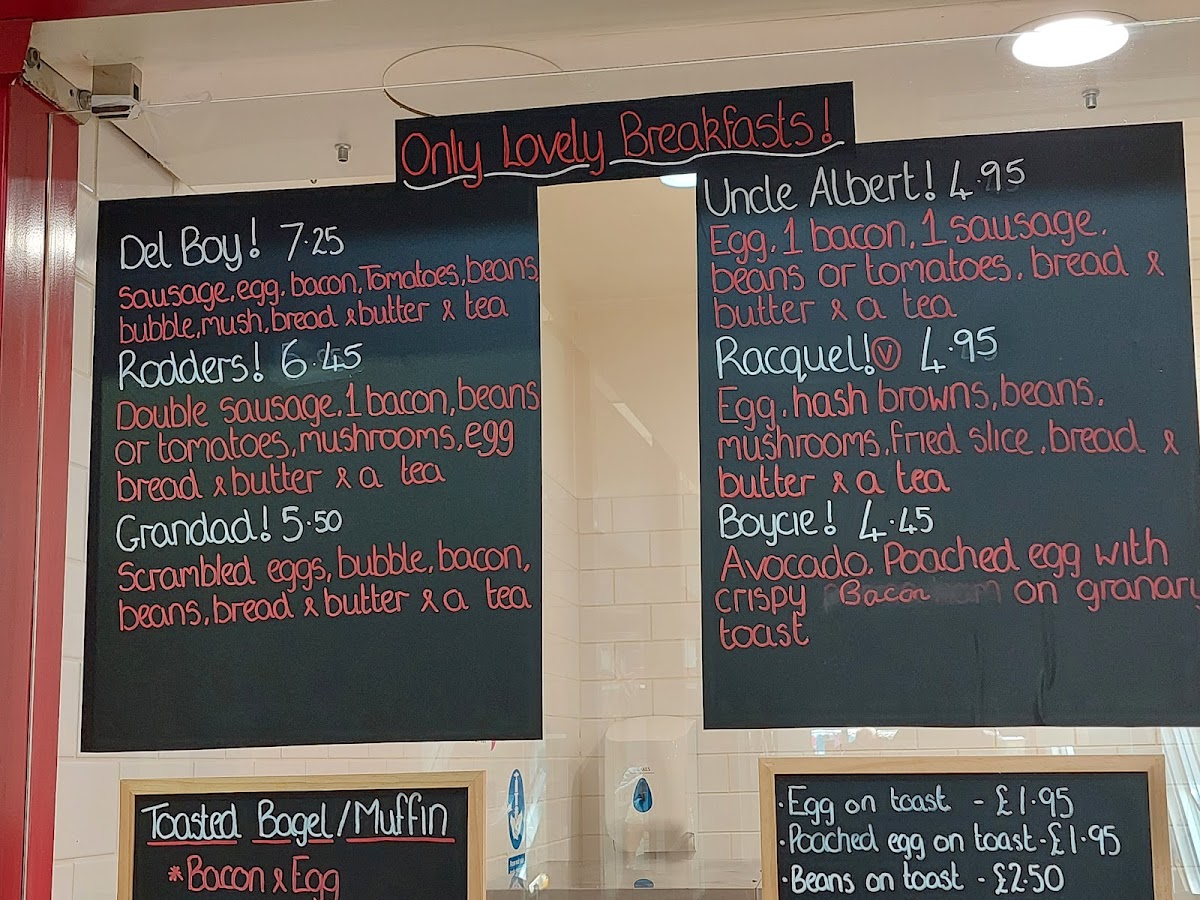 Only Lovely Breakfasts!
Del Boy! 7.25
sausage, egg, bacon, Tomatoes, beans,
bubble, mush, bread & butter & tea
Rodders! 6.45
Double sausage, 1 bacon, beans
or tomatoes, mushrooms, egg
bread & butter & a tea
Grandad! 5.50
Scrambled eggs, bubble, bacon,
beans, bread & butter & a tea
Uncle Albert! 4.95
Egg, 1 bacon, 1 sausage,
beans or tomatoes, bread &
butter & a tea
Racquel! V 4.95
Egg, hash browns, beans,
mushrooms, fried slice, bread &
butter & a tea
Boycie! 4.45
Avocado, Poached egg with
crispy Bacon on granary
toast
Toasted Bagel/Muffin
*Bacon & Egg
·Egg on toast - £1.95
·Poached egg on toast - £1.95
·Beans on toast - £2.50